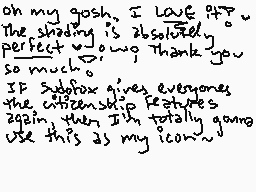 oh my gosh, I LOVE it!
the shading is absolutely
perfect ♥ owo, Thank you
so much.
IF sudofox gives everyones
the citizenship features
again, then I'm totally gonna
use this as my icon~